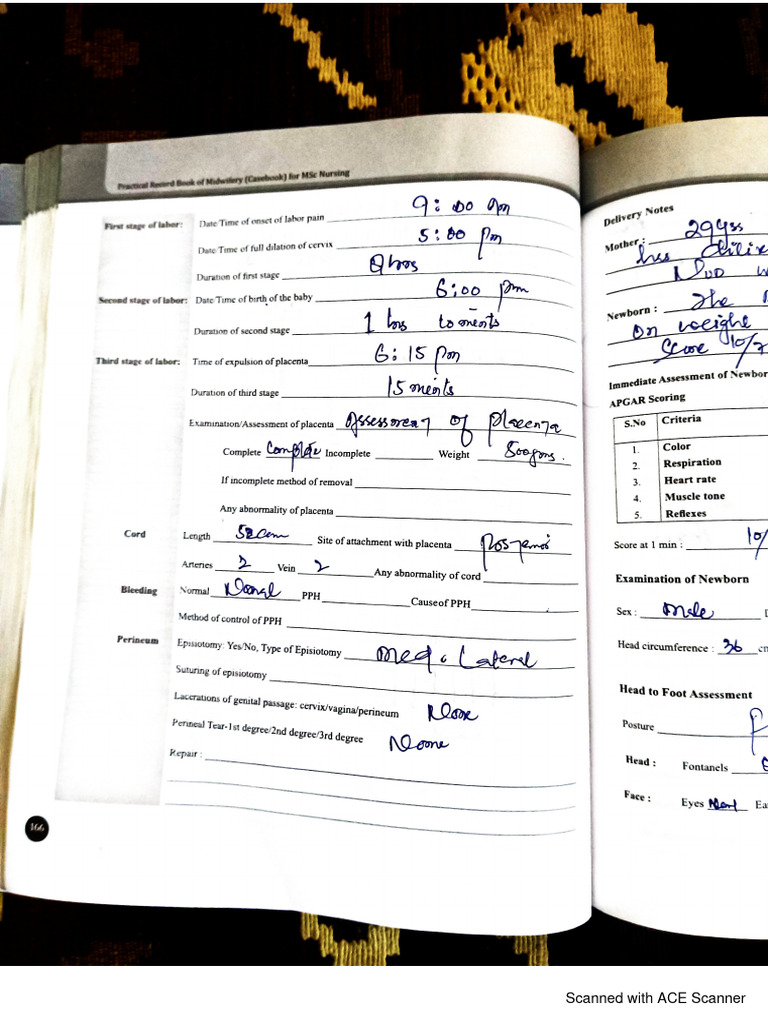 Practical Record Book of Midwifery (Casebook) for MSc Nursing
First stage of labor: Date/Time of onset of labor pain 9:00 am
Date/Time of full dilation of cervix 5:00 pm
Duration of first stage hrs
Second stage of labor: Date/Time of birth of the baby 6:00 pm
Duration of second stage 1 hrs
Third stage of labor: Time of expulsion of placenta 6:15 pm
Duration of third stage 15 
Examination/Assessment of placenta of placenta
Complete Complete Incomplete Weight 500gms.
If incomplete method of removal
Any abnormality of placenta
Cord Length 52cm Site of attachment with placenta
Arteries 2 Vein 2 Any abnormality of cord
Bleeding Normal PPH Cause of PPH
Method of control of PPH
Perineum Episiotomy: Yes/No, Type of Episiotomy Lateral
Suturing of episiotomy
Lacerations of genital passage: cervix/vagina/perineum None
Perineal Tear-1st degree/2nd degree/3rd degree None
Repair :
166
Delivery Notes
Mother :
Newborn : The
on weight
Score 10/
Immediate Assessment of Newbor
APGAR Scoring
S.No Criteria
1. Color
2. Respiration
3. Heart rate
4. Muscle tone
5. Reflexes
Score at 1 min : 10/
Examination of Newborn
Sex : male
Head circumference : 36 cm
Head to Foot Assessment
Posture
Head : Fontanels
Face : Eyes Ea
Scanned with ACE Scanner